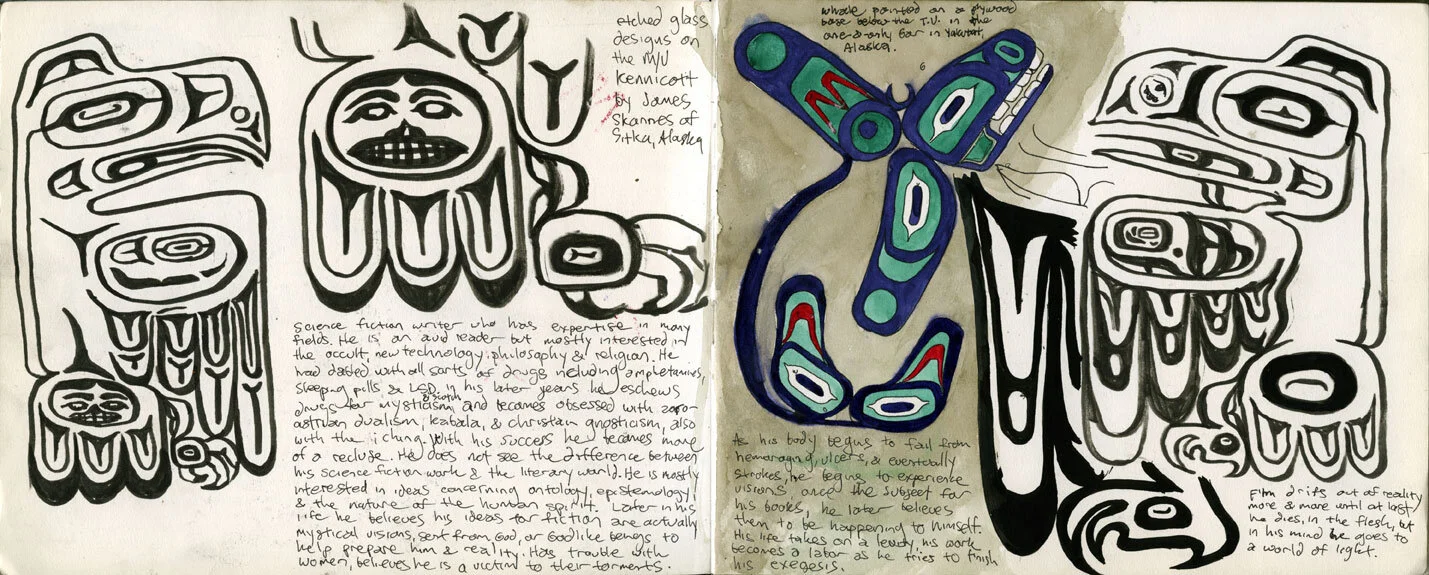 etched glass
designs on
the M/V
Kennicott
by James
Skannes of
Sitka, Alaska
Science fiction writer who has expertise in many
fields. He is an avid reader but mostly interested in
the occult, new technology, philosophy & religion. He
had dabled with all sorts of drugs including amphetamines,
sleeping pills & LSD. in his later years he eschews
drugs for mysticism & scotch and becomes obsessed with zoro-
astrian dualism, kabala, & christian gnosticism, also
with the i ching. With his success he becomes more
of a recluse. He does not see the difference between
his science fiction work & the literary world. He is mostly
interested in ideas concerning ontology, epistemology,
& the nature of the human spirit. Later in his
life he believes his ideas for fiction are actually
mystical visions, sent from God, or Godlike beings to
help prepare him & reality. Has trouble with
women, believes he is a victim to their torments.
whale painted on a plywood
base below the T.V. in the
one-&-only bar in Yakutat,
Alaska.
As his body begins to fail from
hemoraging, ulcers, & eventually
strokes, he begins to experience
visions, once the subject for
his books, he later believes
them to be happening to himself.
His life takes on a levity, his work
becomes a labor as he tries to finish
his exegesis.
Film drifts out of reality
more & more until at last
he dies, in the flesh, but
in his mind he goes to
a world of light.